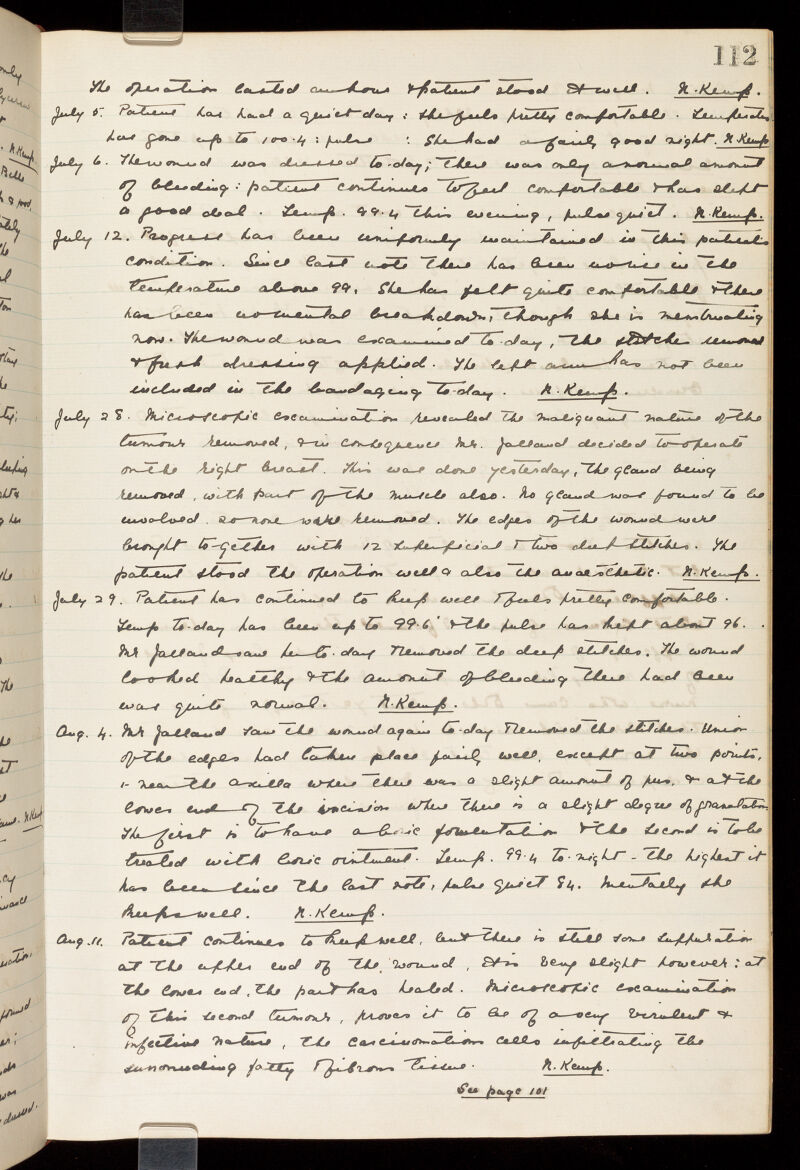 112
The operation lasted an hour & patient stood it well. N. Kemp.
July 5. Patient has had a quiet day: she feels pretty comfortable. Temperature
has gone up to 100.4: pulse : She had a fairly good night. N. Kemp
July 6. The wound was dressed to-day; there was only a normal amount
of bleeding: patient continues to feel comfortable & has slept
a good deal. Temp. 99.4 this evening, pulse quiet. N. Kemp.
July 12. Progress has been uniformly maintained in this patient's
condition. Since last note there has been no rise in the
temperature above 99. She has felt quite comfortable & there
has been no mental breakdown, though she is menstruating
now. The wound was examined to-day, the stitches removed
& fresh dressing applied. The left arm has not been
included in the bandaging to-day. N. Kemp.
July 28. Microscopic examination revealed the malignant nature of the
tumour removed, & in consequence Mr. Jalland decided to operate
on the right breast. This was done yesterday, the gland being
removed, with part of the muscle also. No gland was found to be
involved so none were removed. The edges of the wound were
brought together with 12 superficial & two deep stitches. The
patient stood the operation well & also the anaesthetic. N. Kemp.
July 29. Patient has continued to keep well & feels pretty comfortable.
Temp to-day has been up to 99.6° & the pulse has kept about 96.
Mr Jalland saw her to-day & removed the deep stitches. The wound
looked healthy & the amount of bleeding there had been
was quite normal. N. Kemp.
Aug. 4. Mr Jalland saw the wound again to-day & removed the stitches. Union
of the edges had taken place fairly well, except at two points,
1- near the axilla where there was a slight amount of pus, & at the
lower end of the incision where there is a slight degree of granulation
The first is to have a boric fomentation & the second is to be
treated with boric ointment. Temp. 99.4 to-night - the highest it
has been since the last note, pulse quiet 84. Mentally she
keeps well. N. Kemp.
Aug. 11. Patient continues to keep well, but there is still some suppuration
at the upper end of the wound, it is very slight however: at
the lower end, the part has healed. Microscopic examination
of this second tumour, proves it to be of a very virulent &
infective nature, the carcinomatous cells infiltrating the
surrounding fatty & fibrous tissue. N. Kemp.
See page 101